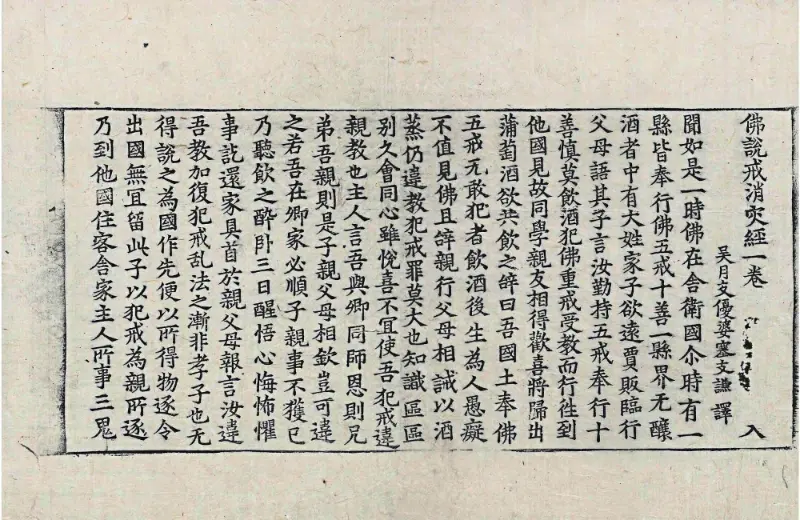 佛說戒消灾經一卷 入
吳月支優婆塞支謙 譯
聞如是一時佛在舍衛國尒時有一
縣皆奉行佛五戒十善一縣界无釀
酒者中有大姓家子欲遠賈販臨行
父母語其子言汝勤持五戒奉行十
善慎莫飲酒犯佛重戒受教而行徃到
他國見故同學親友相得歡喜將歸出
蒲萄酒欲共飲之辝曰吾國土奉佛
五戒无敢犯者飲酒後生為人愚癡
不值見佛且辝親行父母相誡以酒
蒸仍違教犯戒罪莫大也知識區區
別久會同心雖悅喜不宜使吾犯戒違
親教也主人言吾與卿同師恩則兄
弟吾親則是子親父母相欽豈可違
之若吾在卿家必順子親事不獲已
乃聽飲之醉卧三日醒悟心悔怖懼
事訖還家具首於親父母報言汝違
吾教加復犯戒乱法之漸非孝子也无
得說之為國作先便以所得物逐令
出國無宜留此子以犯戒為親所逐
乃到他國住客舍家主人所事三鬼